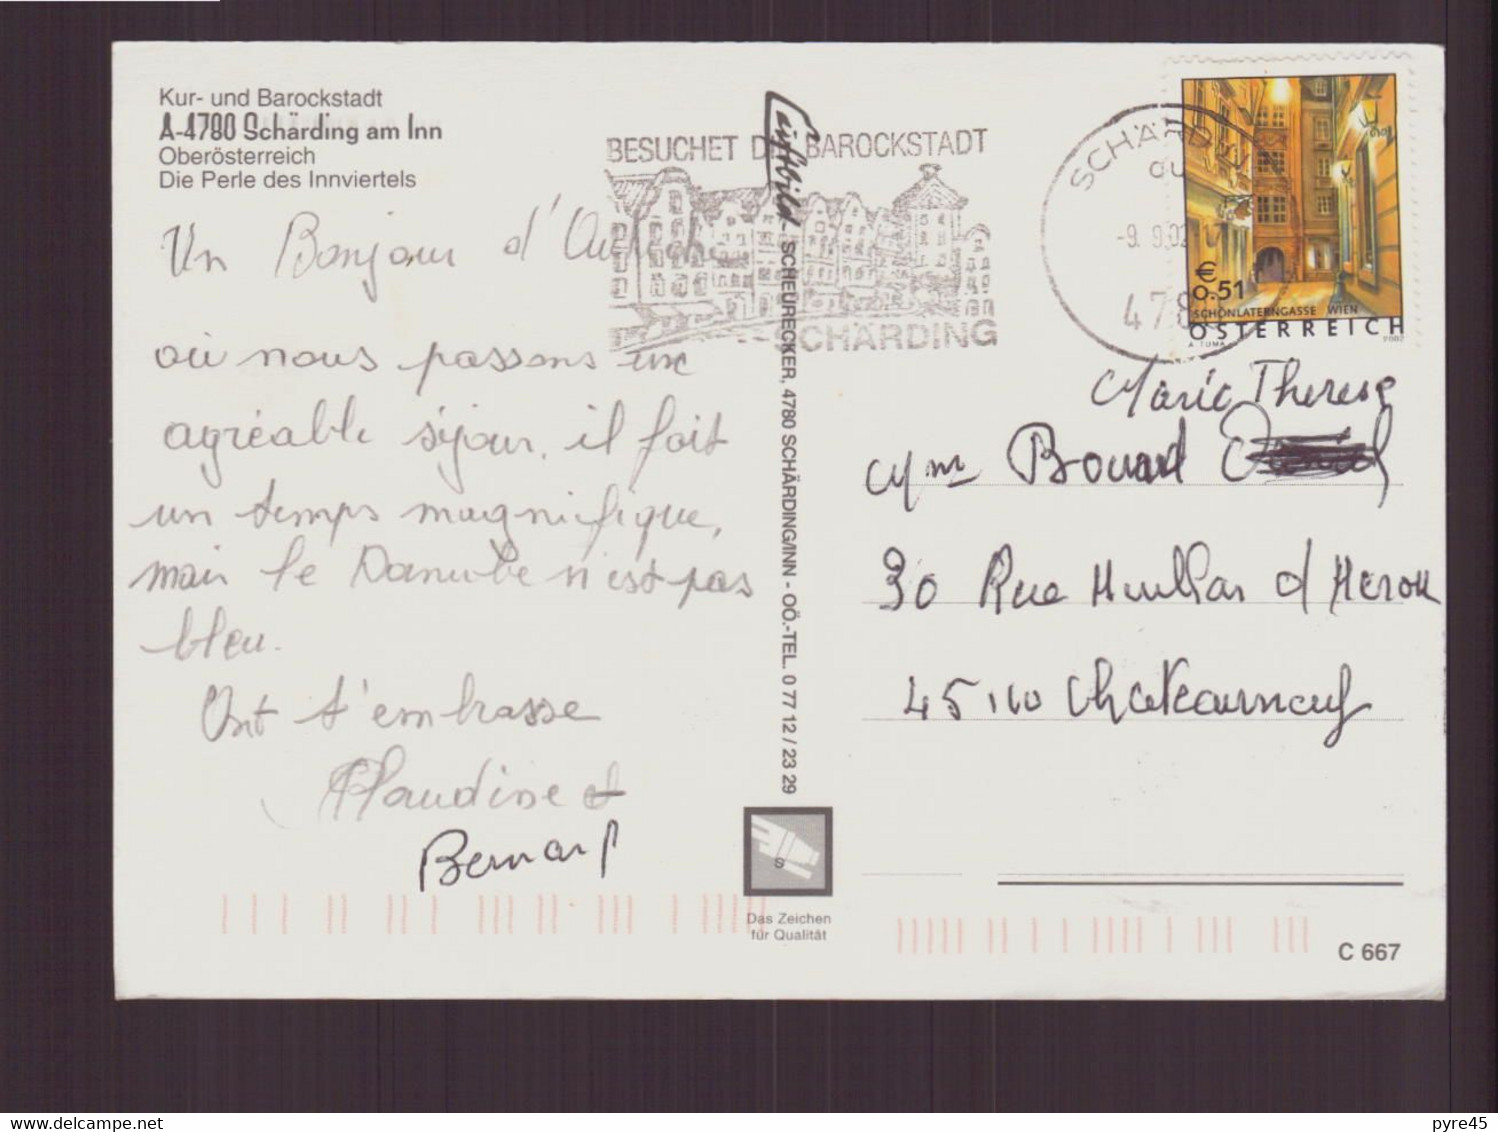 Kur- und Barockstadt
A-4780 Schärding am Inn
Oberösterreich
Die Perle des Innviertels
Un Bonjour d'
où nous passons une
agréable séjour, il fait
un temps magnifique,
mais le Danube n'est pas
bleu.
Ont t'embrasse
Claudine et
Bernard
BESUCHET DIE BAROCKSTADT
SCHÄRDING
luftbild - SCHEURECKER, 4780 SCHÄRDING/INN - OÖ.-TEL. 0 77 12 / 23 29
S
Das Zeichen
für Qualität
SCHÄRDING
-9. 9.02
4780
€
0.51
SCHÖNLATERNGASSE WIEN
ÖSTERREICH
A. TUMA 2002
Marie Therese
Mme Bouard
30 Rue d Heron
45110 Chateauneuf
C 667
pyre45